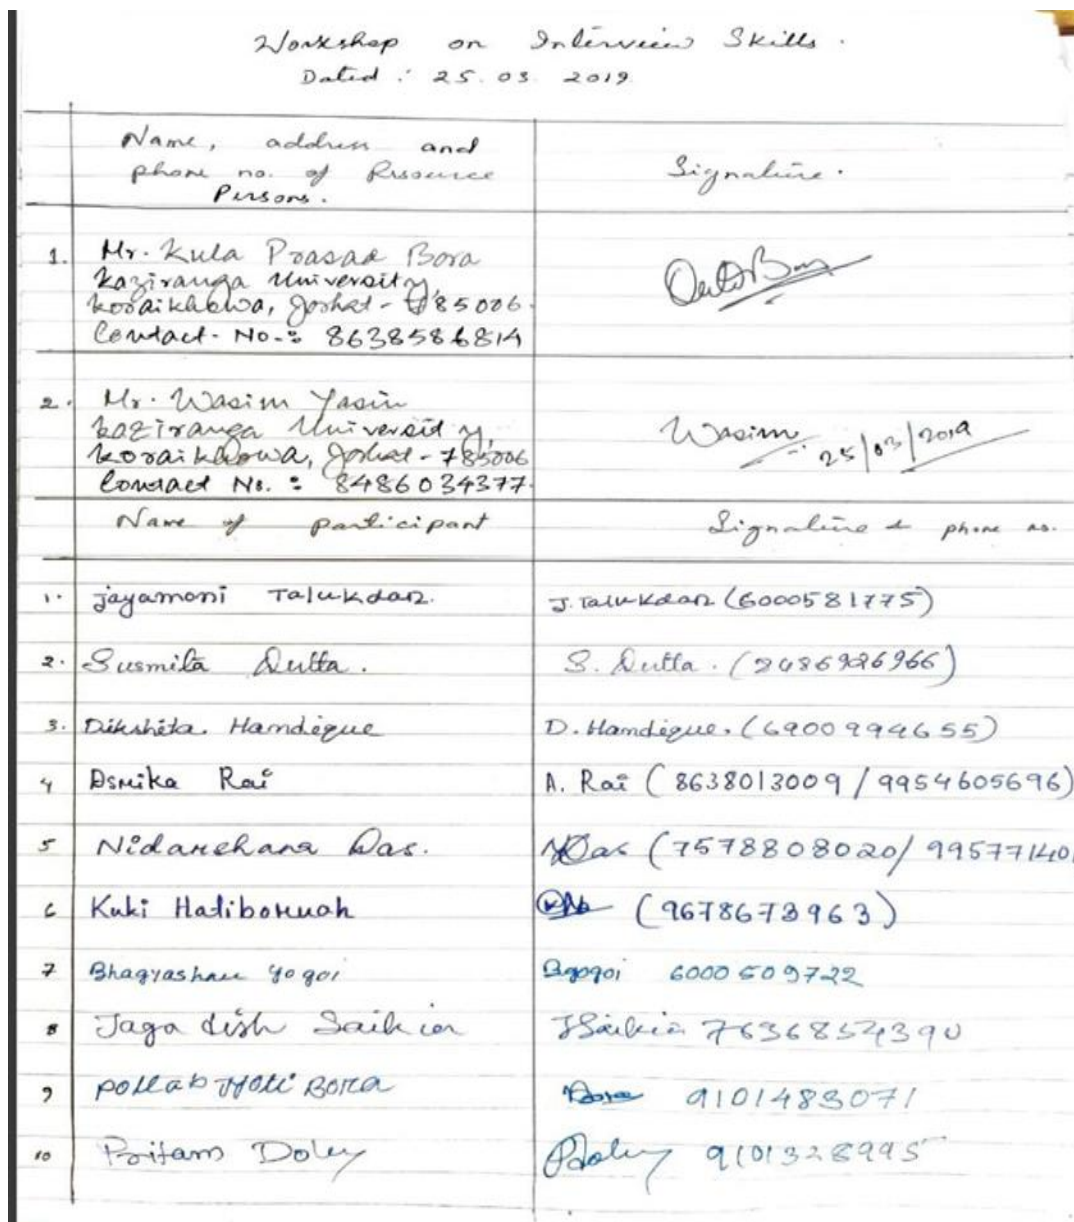 Workshop on Interview Skills.
Dated: 25.03.2019
Name, address and
phone no. of Resource
Persons.
Signature.
1. Mr. Kula Prasad Bora
Kaziranga University,
Koraikhowa, Jorhat - 785006.
Contact - No.: 8638586814
2. Mr. Wasim Yasin
Kaziranga University,
Koraikhowa, Jorhat - 785006
Contact No.: 8486034377.
Wasim 25/03/2019
Name of participant Signature & phone no.
1. Jayamoni Talukdar. J. Talukdar (6000581775)
2. Susmita Dutta. S. Dutta. (8486926966)
3. Dikshita Handique D. Handique. (6900994655)
4 Asmika Rai A. Rai (8638013009 / 9954605696)
5 Nidarshana Das. NDas (7578808020/ 995771401
6 Kuki Hatiboruah (9678673963)
7 Bhagyashree Gogoi Bgogoi 6000509722
8 Jagadish Saikia JSaikia 7636854390
9 Pollab Jyoti Bora Bora 9101483071
10 Pritam Doley PDoley 9101328995